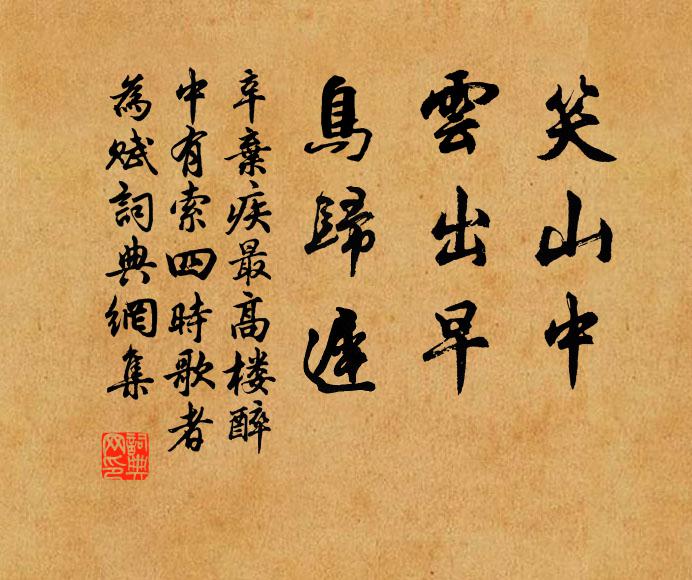 笑山中
雲出早
鳥歸遲
辛棄疾最高楼醉
中有索四時歌者
為賦詞典網集
詞典
网印